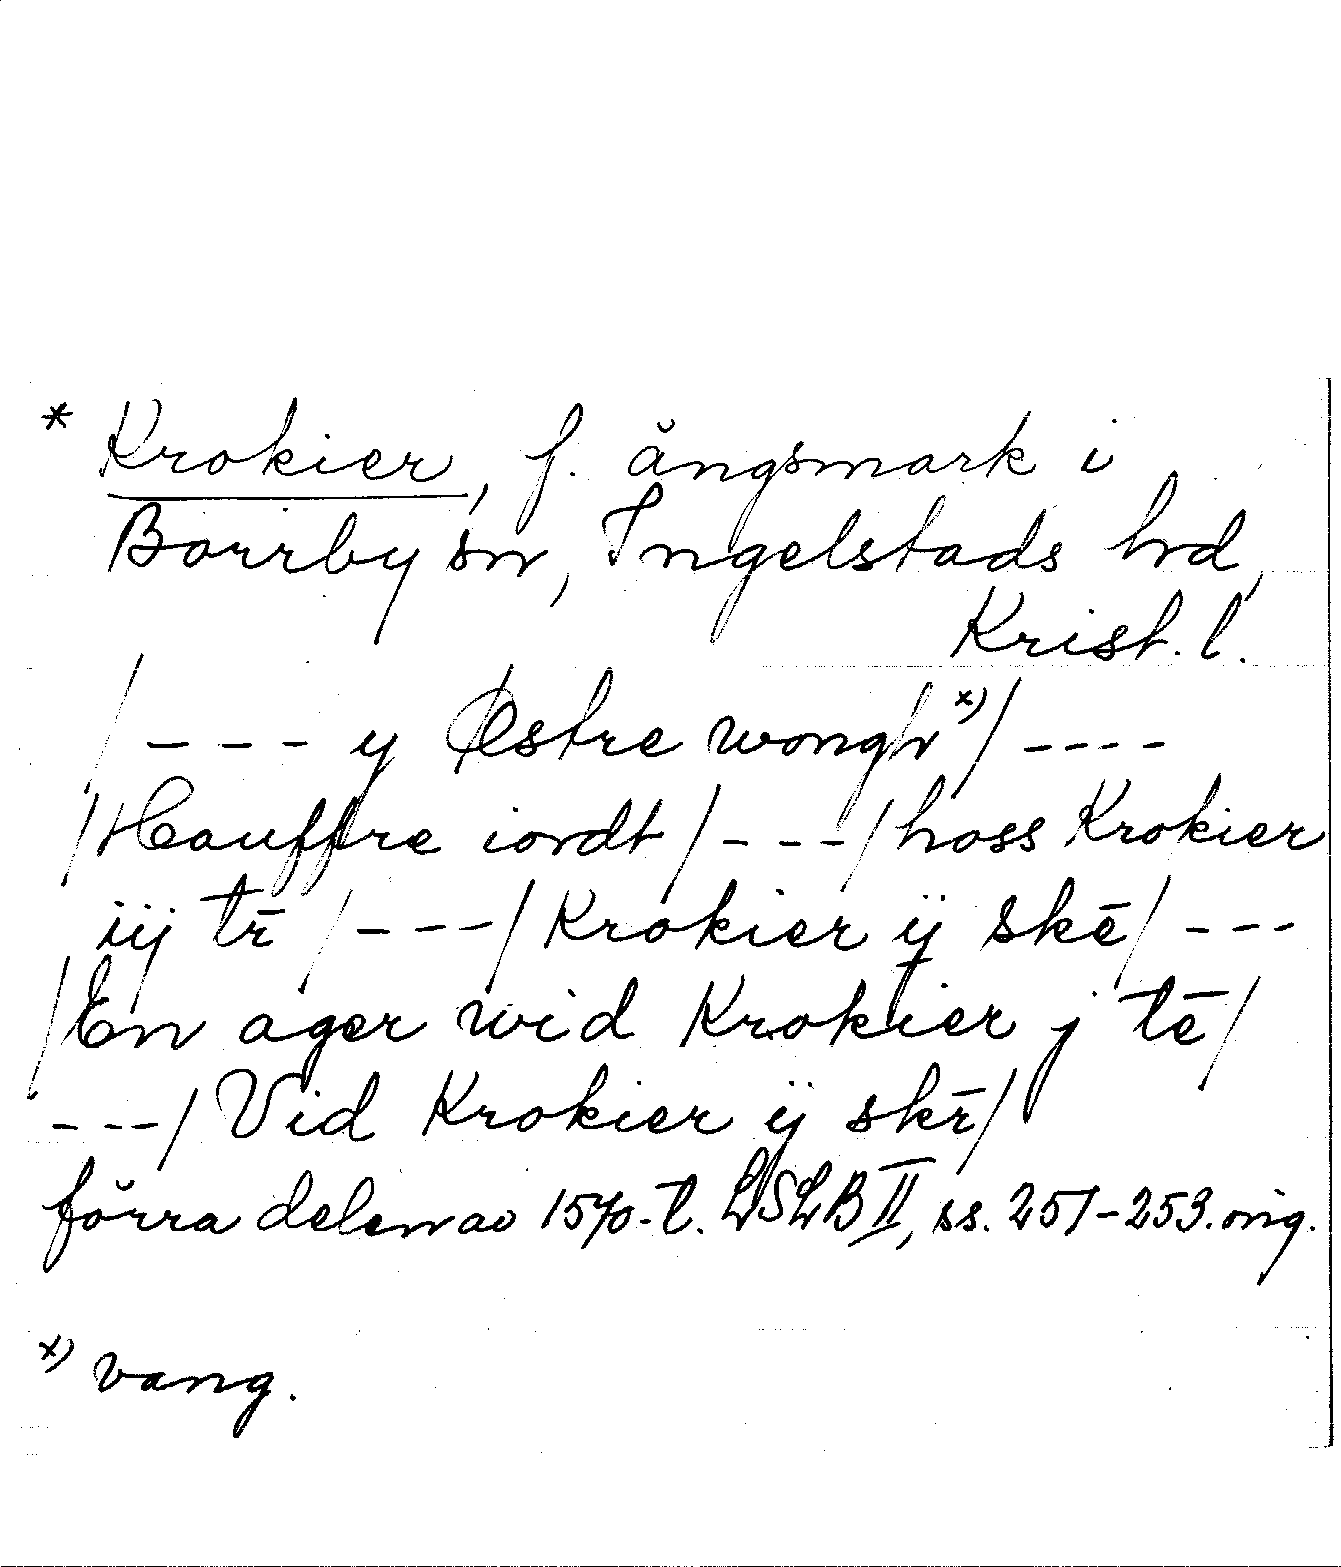 * Krokier, f. ängsmark i
Borrby sn, Ingelstads hd,
Krist. l.
/ - - - y Østre wongh x) / - - - -
/ Hauffre iordt / - - - / hoss Krokier
iij tr̄ / - - - / Krokier ij skē / - - -
/ En ager wid Krokier j tē /
- - - / Vid Krokier ij skr̄ /
förra delen av 1570-t. LSLB II, ss. 251-253. orig.
x) vang.